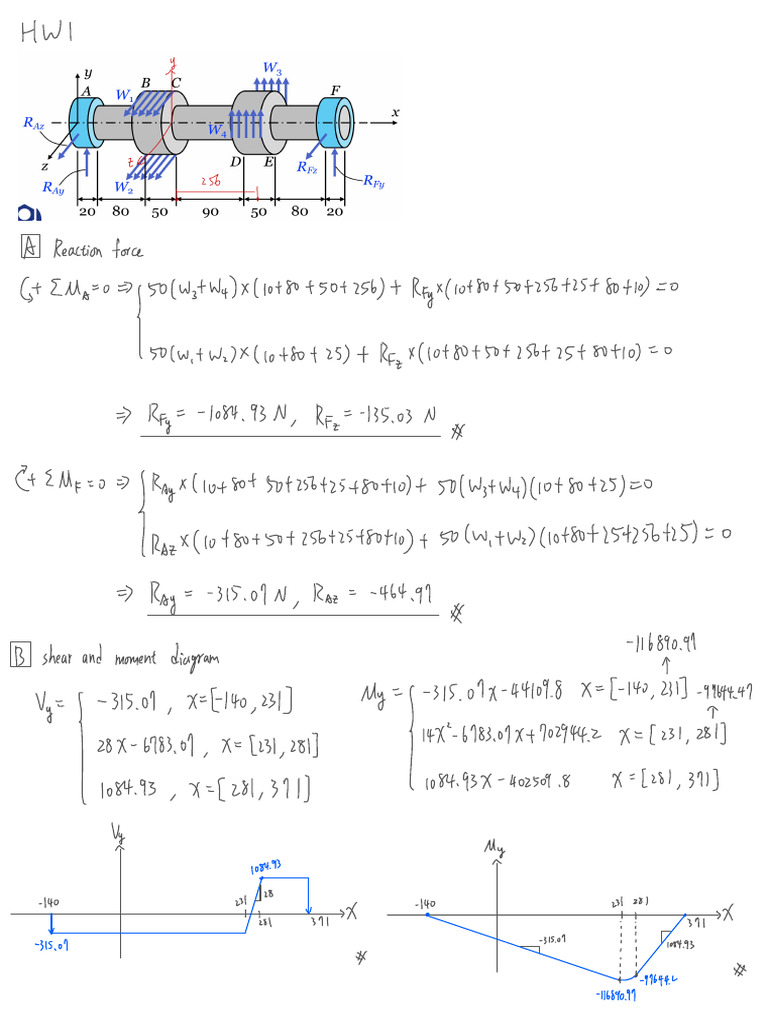 HW1
y
y
A B C W₃ F
W₁
x
R_Az W₄
z z
R_Ay W₂ D E R_Fz R_Fy
256
20 80 50 90 50 80 20
A Reaction force
↺+ ΣM_A=0 ⇒ { 50(W₃+W₄)×(10+80+50+256) + R_Fy×(10+80+50+256+25+80+10)=0
50(W₁+W₂)×(10+80+25) + R_Fz×(10+80+50+256+25+80+10)=0
⇒ R_Fy = -1084.93 N, R_Fz = -135.03 N
↻+ ΣM_F=0 ⇒ { R_Ay×(10+80+50+256+25+80+10) + 50(W₃+W₄)(10+80+25)=0
R_Az×(10+80+50+256+25+80+10) + 50(W₁+W₂)(10+80+25+256+25)=0
⇒ R_Ay = -315.07 N, R_Az = -464.97
B shear and moment diagram
-116890.97
V_y = { -315.07, X=[-140, 231]
28X-6783.07, X=[231, 281]
1084.93, X=[281, 371]
M_y = { -315.07X-44109.8 X=[-140, 231] -97644.47
14X²-6783.07X+702944.2 X=[231, 281]
1084.93X-402509.8 X=[281, 371]
V_y
1084.93
-140 231 28 X
281 371
-315.07
M_y
-140 231 281 X
371
-315.07 1084.93
-97644.2
-116890.97